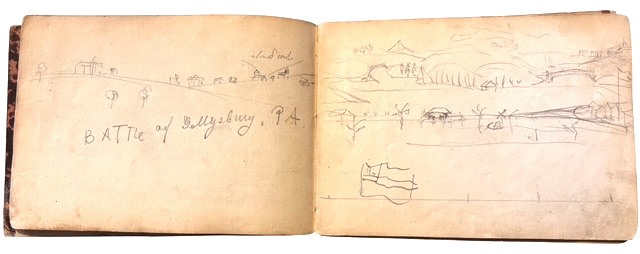 BATTle of Gettysburg, PA.